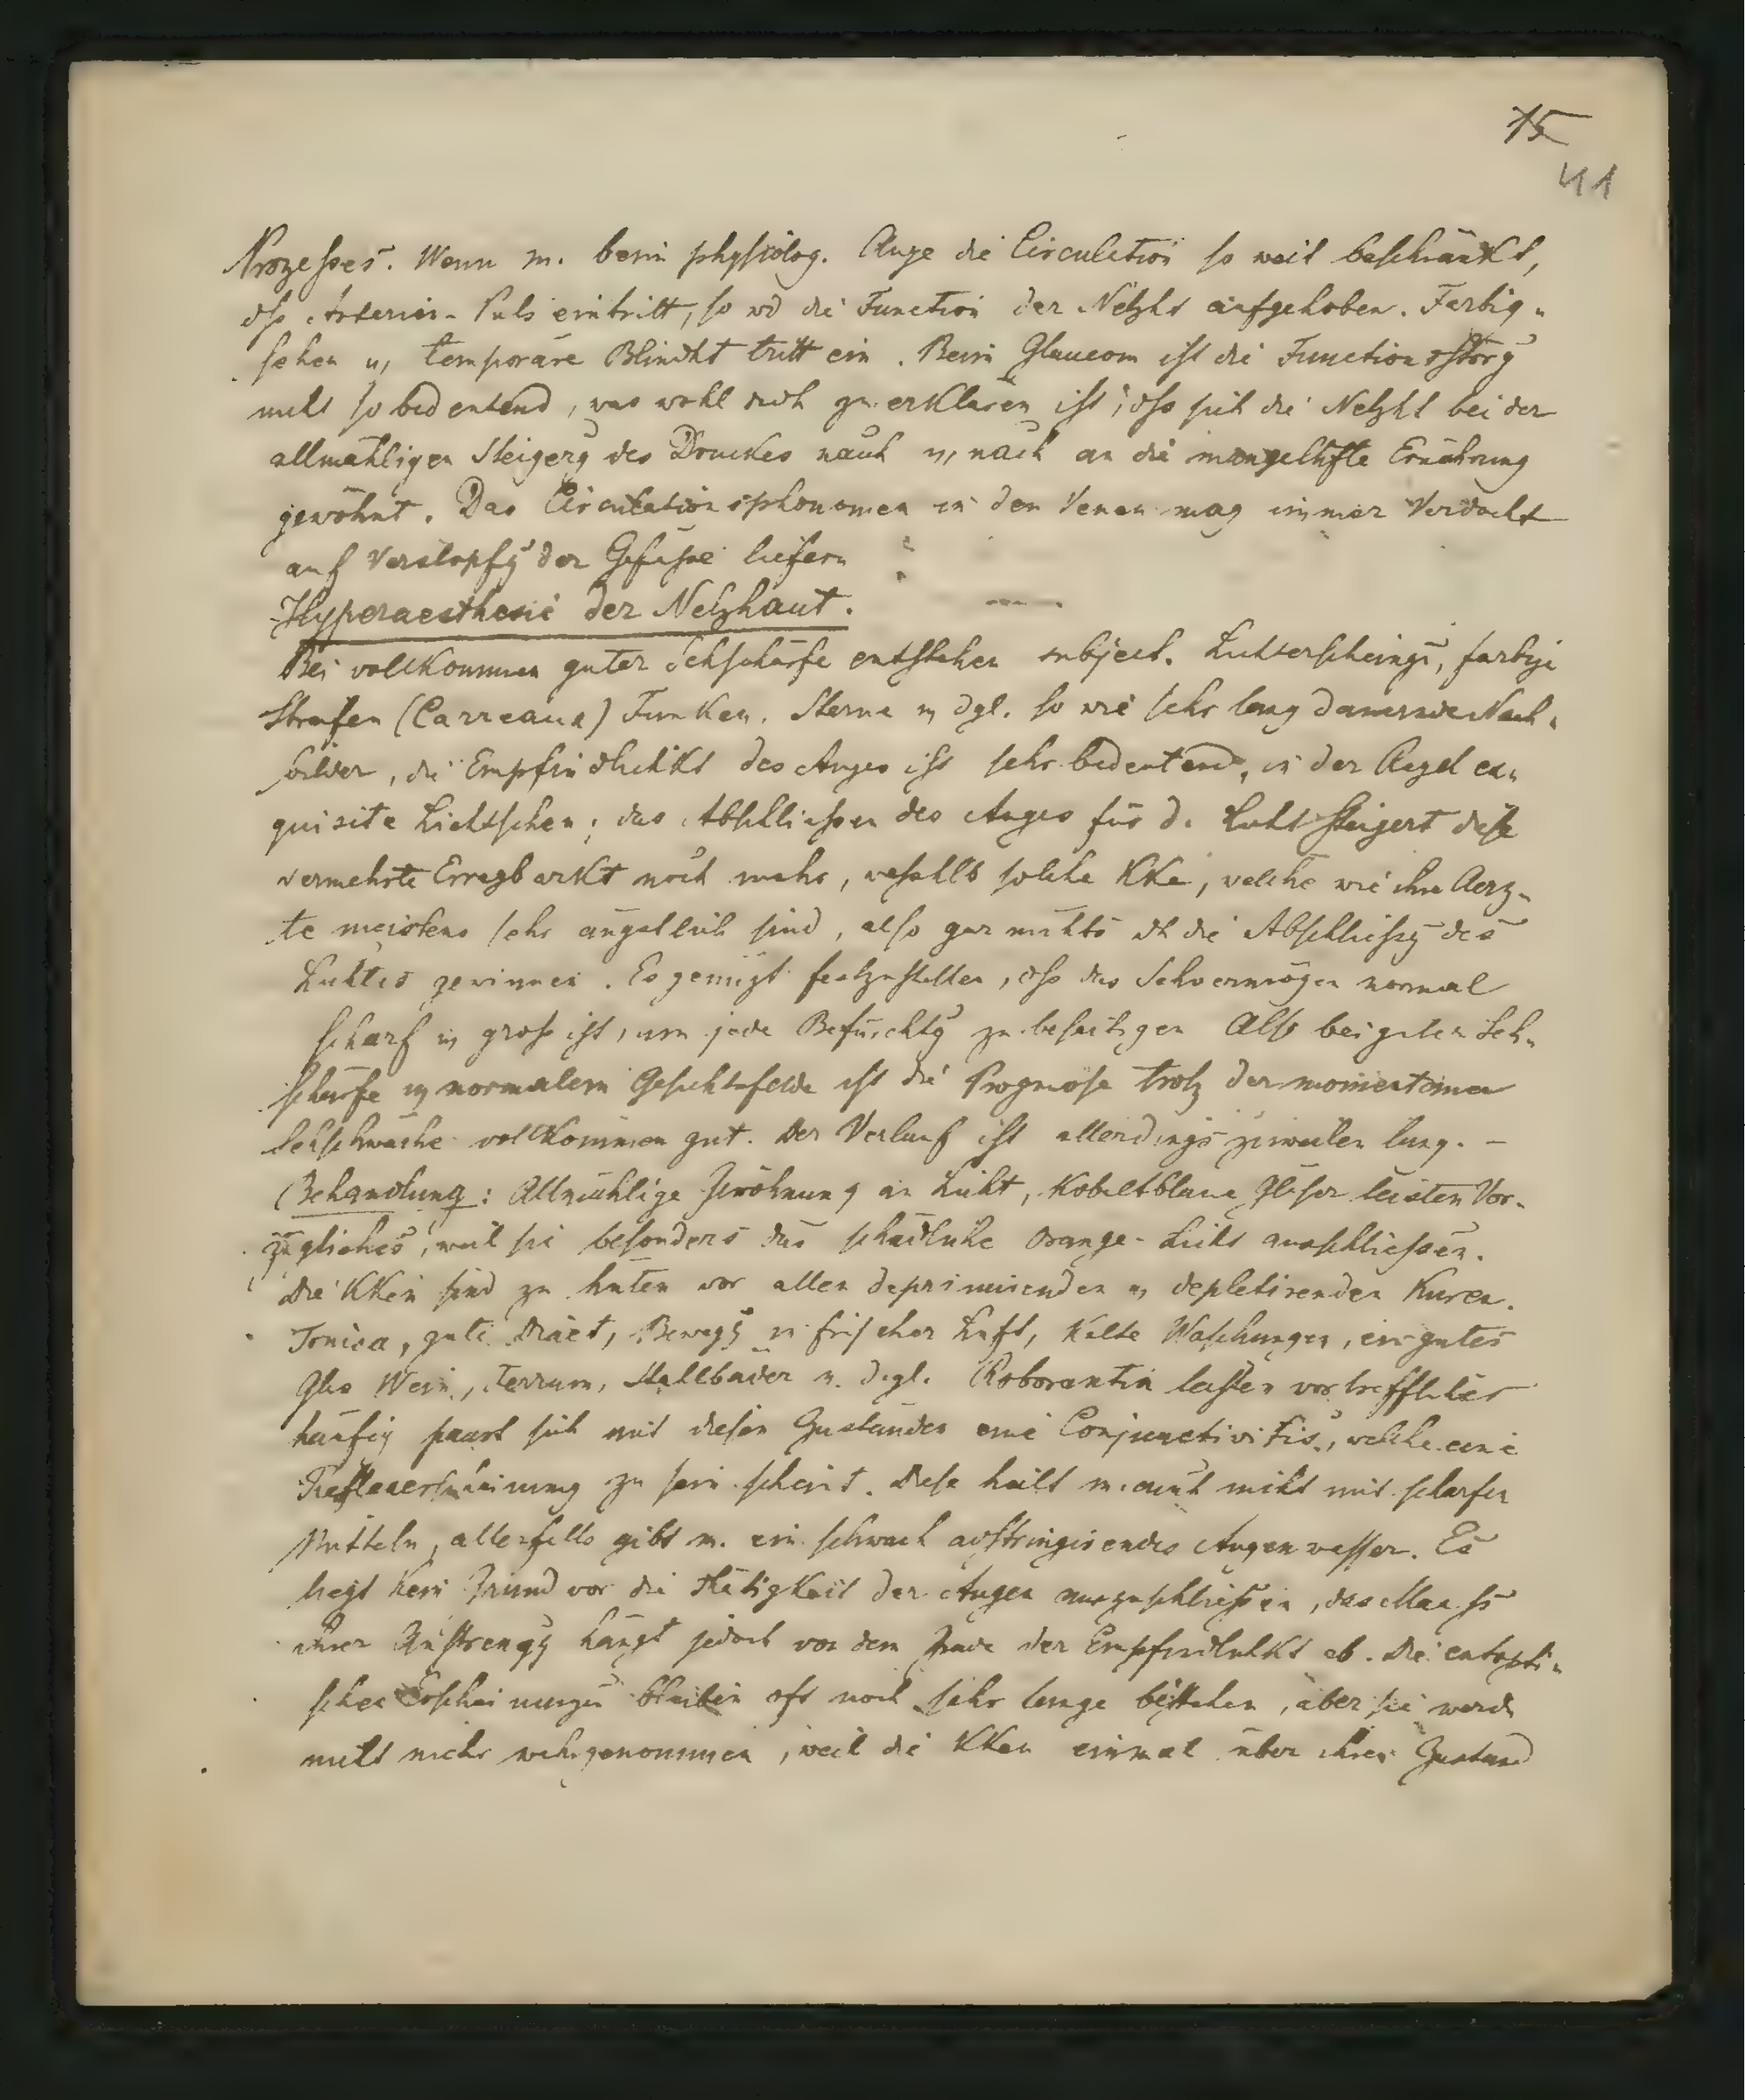 15
41
Prozesses. Wenn m. beim physiolog. Auge die Circulation so weit beschränkt,
dss Arterien-Puls eintritt, so wd die Function der Netzht aufgehoben. Farbig-
sehen u. temporäre Blindht tritt ein. Beim Glaucom ist die Functionsstörg
nicht so bedeutend, was wohl dch zu erklären ist, dss sich die Netzht bei der
allmähligen Steigerg des Druckes nach u. nach an die mangelhafte Ernährung
gewöhnt. Das Circulationsphänomen in den Venen mag immer Verdacht
auf Verstopfg der Gefässe liefern
Hyperaesthesie der Netzhaut.
Bei vollkommen guter Sehschärfe entstehen subject. Lichterscheingn, farbige
Streifen (Carreaux) Funken, Sterne u dgl. so wie sehr lang dauernde Nach-
bilder, die Empfindlichkt des Auges ist sehr bedeutend, in der Regel ex-
quisite Lichtscheu; das Abschliessen des Auges für d. Licht steigert diese
vermehrte Erregbarkt noch mehr, weshalb solche KKe, welche wie ihre Aerz-
te meistens sehr ängstlich sind, also gar nichts dch die Abschliessg des
Lichtes gewinnen. Es genügt festzustellen, dss das Sehvermögen normal
scharf u gross ist, um jede Befürchtg zu beseitigen Also bei guter Seh-
schärfe u normalem Gesichtsfelde ist die Prognose trotz der momentanen
Sehschwäche vollkommen gut. Der Verlauf ist allerdings zuweilen lang. –
Behandlung: Allmählige Gewöhnung an Licht, Kobaltblaue Gläser leisten Vor-
zügliches, weil sie besonders das schädliche Orange-Licht ausschliessen.
Die KKen sind zu hüten vor allen deprimirenden u depletirenden Kuren.
Tonica, gute Diaet, Bewegg in frischer Luft, Kalte Waschungen, ein gutes
Glas Wein, Ferrum, Stallbäder u. dgl. Roborantia leisten vortreffliches
häufig paart sich mit diesen Zuständen eine Conjunctivitis, welche eine
Reflexerscheinung zu sein scheint. Diese heilt m. auch nicht mit scharfen
Mitteln, allenfalls gibt m. ein schwach adstringirendes Augenwasser. Es
liegt kein Grund vor die Thätigkeit der Augen auszuschliessen, das Maass
ihrer Anstrengg hängt jedoch von dem Grade der Empfindlichkt ab. Die entopti-
schen Erscheinungen bleiben oft noch sehr lange bestehen, aber sie werdn
nicht mehr wahrgenommen, weil die KKen einmal über ihren Zustand